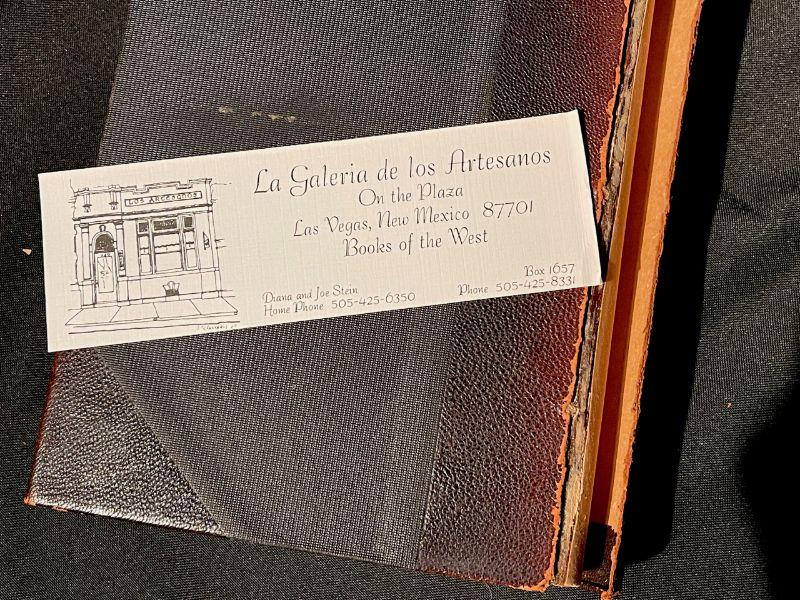 LOS ARTESANOS
La Galeria de los Artesanos
On the Plaza
Las Vegas, New Mexico 87701
Books of the West
Diana and Joe Stein
Home Phone 505-425-6350
Box 1657
Phone 505-425-8331